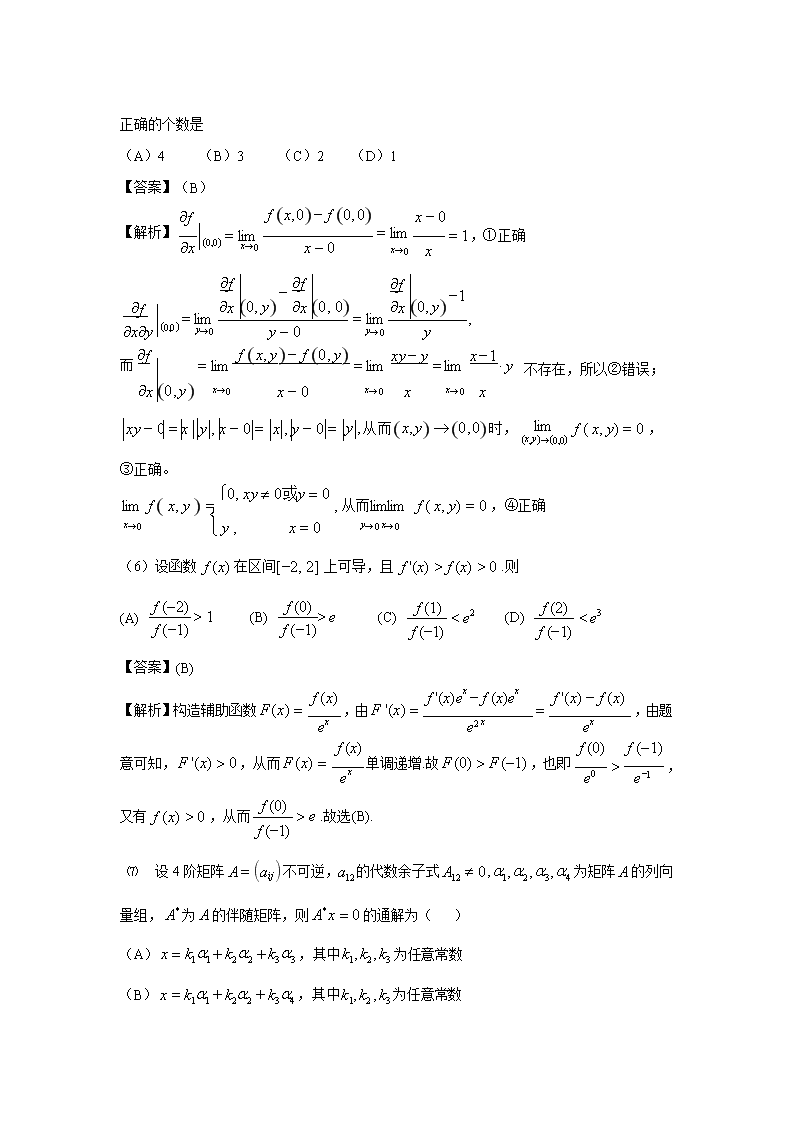 正确的个数是
（A）4 （B）3 （C）2 （D）1
【答案】（B）
【解析】∂f/∂x|(0,0) = lim x→0 (f(x,0)−f(0,0))/(x−0) = lim x→0 (x−0)/x = 1,①正确
∂f/∂x∂y|(0,0) = lim y→0 (∂f/∂x|(0,y) − ∂f/∂x|(0,0))/(y−0) = lim y→0 (∂f/∂x|(0,y) −1)/y,
而∂f/∂x|(0,y) = lim x→0 (f(x,y)−f(0,y))/(x−0) = lim x→0 (xy−y)/x = lim x→0 (x−1)/x · y 不存在，所以②错误；
|xy−0|=|x||y|,|x−0|=|x|,|y−0|=|y|,从而(x,y)→(0,0)时， lim (x,y)→(0,0) f(x,y)=0，
③正确。
lim x→0 f(x,y)={0, xy≠0或y=0
y, x=0 , 从而lim y→0 lim x→0 f(x,y)=0，④正确
（6）设函数 f(x) 在区间[−2,2] 上可导，且 f'(x)>f(x)>0 .则
(A) f(−2)/f(−1) > 1 (B) f(0)/f(−1) > e (C) f(1)/f(−1) < e² (D) f(2)/f(−1) < e³
【答案】(B)
【解析】构造辅助函数F(x)= f(x)/eˣ ,由F'(x)= (f'(x)eˣ−f(x)eˣ)/e²ˣ = (f'(x)−f(x))/eˣ ，由题
意可知，F'(x)>0，从而F(x)= f(x)/eˣ 单调递增.故F(0)>F(−1)，也即 f(0)/e⁰ > f(−1)/e⁻¹ ，
又有 f(x)>0，从而 f(0)/f(−1) > e .故选(B).
⑺ 设4阶矩阵A=(aᵢⱼ)不可逆，a₁₂的代数余子式A₁₂≠0,α₁,α₂,α₃,α₄为矩阵A的列向
量组，A*为A的伴随矩阵，则A*x=0的通解为（ ）
（A）x=k₁α₁+k₂α₂+k₃α₃，其中k₁,k₂,k₃为任意常数
（B）x=k₁α₁+k₂α₂+k₃α₄，其中k₁,k₂,k₃为任意常数